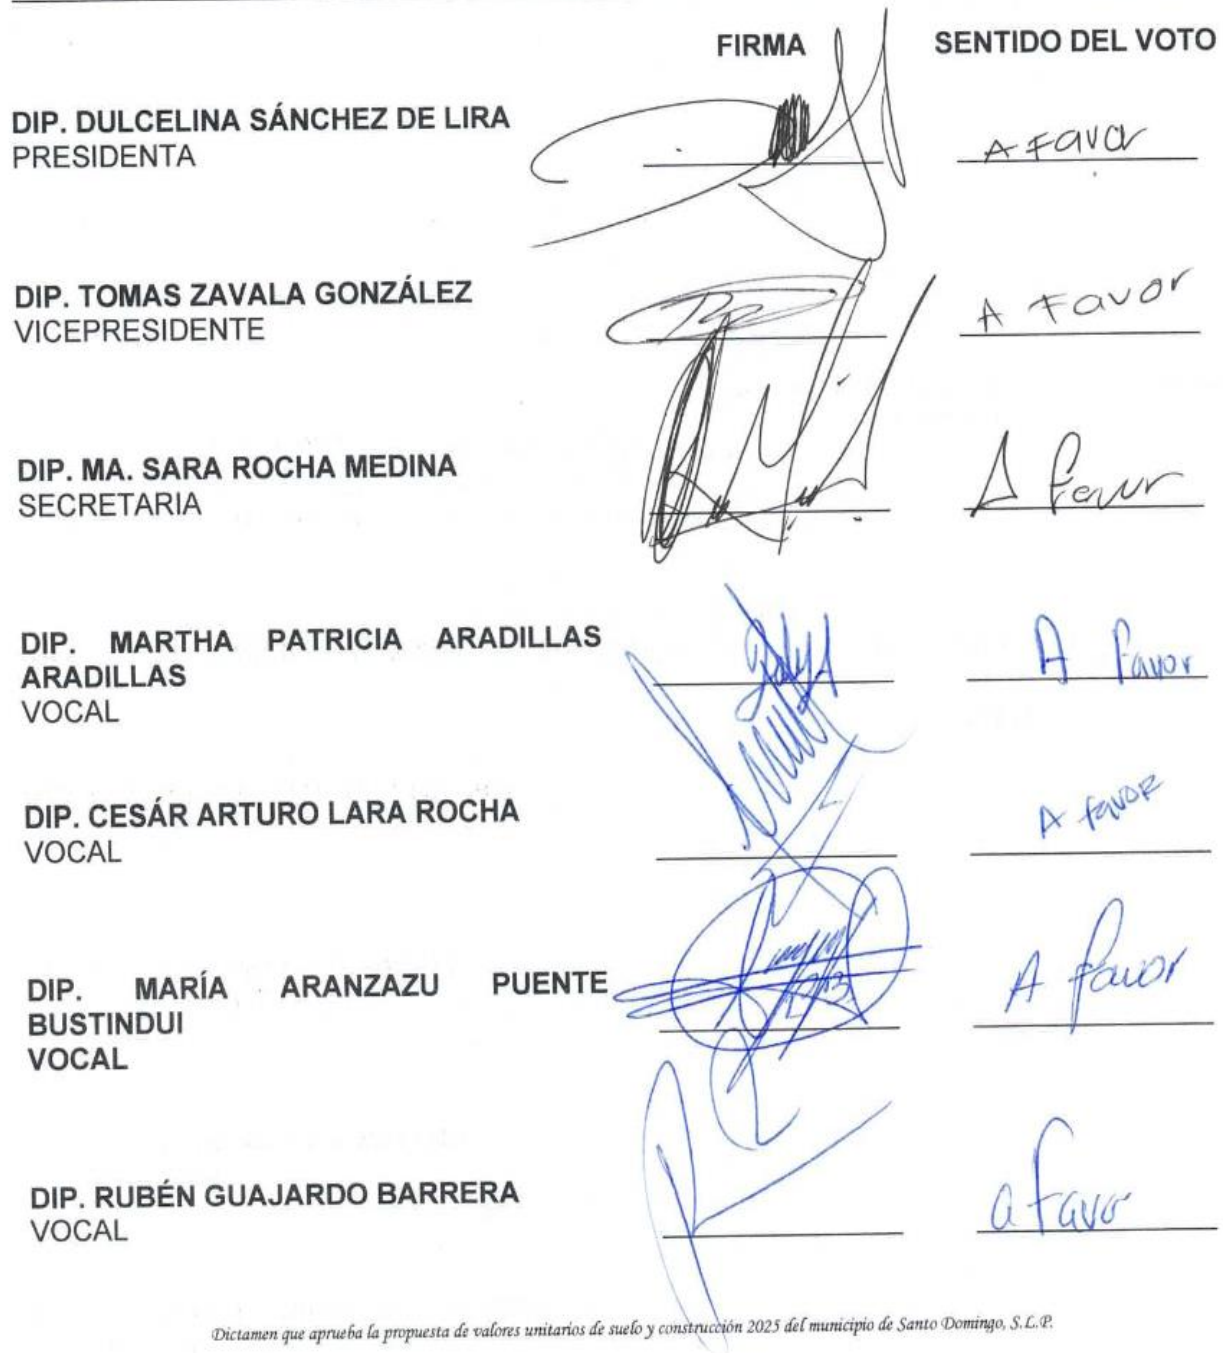 FIRMA SENTIDO DEL VOTO
DIP. DULCELINA SÁNCHEZ DE LIRA
PRESIDENTA
A Favor
DIP. TOMAS ZAVALA GONZÁLEZ
VICEPRESIDENTE
A Favor
DIP. MA. SARA ROCHA MEDINA
SECRETARIA
A favor
DIP. MARTHA PATRICIA ARADILLAS
ARADILLAS
VOCAL
A favor
DIP. CESÁR ARTURO LARA ROCHA
VOCAL
A favor
DIP. MARÍA ARANZAZU PUENTE
BUSTINDUI
VOCAL
A favor
DIP. RUBÉN GUAJARDO BARRERA
VOCAL
a favor
Dictamen que aprueba la propuesta de valores unitarios de suelo y construcción 2025 del municipio de Santo Domingo, S.L.P.